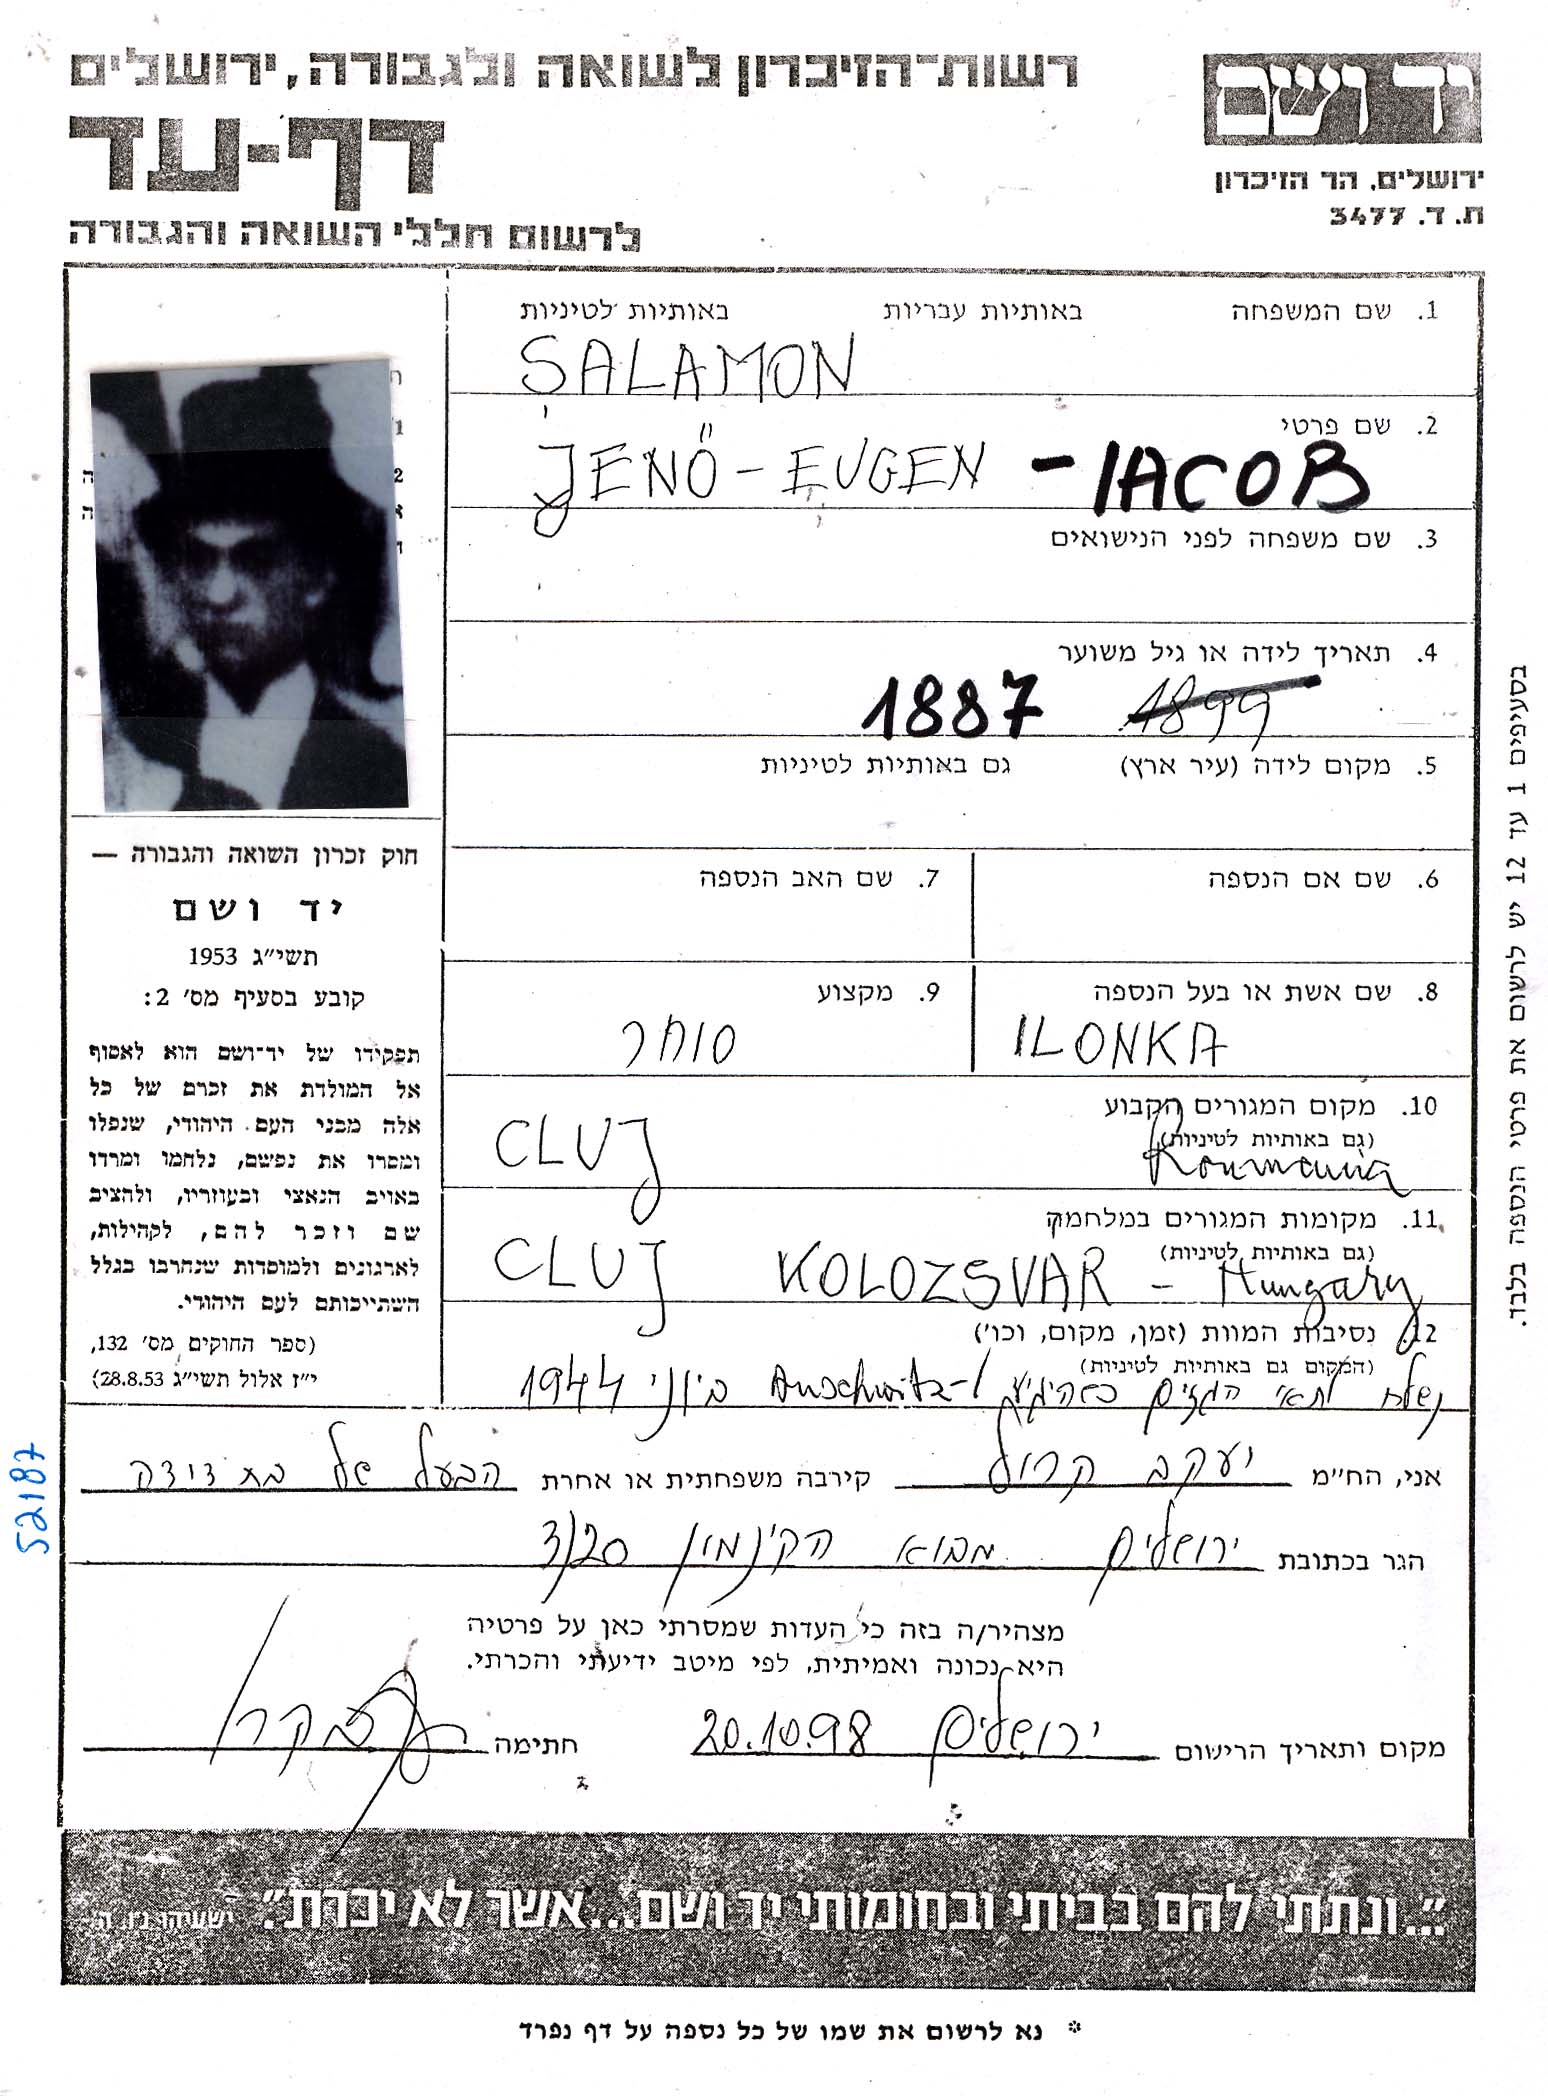 רשות-הזיכרון לשואה ולגבורה, ירושלים
דף-עד
לרשום חללי השואה והגבורה
יד ושם
ירושלים, הר הזיכרון
ת.ד. 3477
1. שם המשפחה באותיות עבריות באותיות לטיניות
SALAMON
2. שם פרטי
JENŐ - EUGEN - IACOB
3. שם משפחה לפני הנישואים
4. תאריך לידה או גיל משוער
1899 1887
5. מקום לידה (עיר ארץ) גם באותיות לטיניות
6. שם אם הנספה
7. שם האב הנספה
8. שם אשת או בעל הנספה
ILONKA
9. מקצוע
סוחר
10. מקום המגורים הקבוע
(גם באותיות לטיניות)
CLUJ Roumania
11. מקומות המגורים במלחמה
(גם באותיות לטיניות)
CLUJ KOLOZSVAR - Hungary
12. נסיבות המוות (זמן, מקום, וכו')
(המקום גם באותיות לטיניות)
נשלח לתאי הגזים כשהיגיע ל-Auschwitz ביוני 1944
חוק זכרון השואה והגבורה —
יד ושם
תשי"ג 1953
קובע בסעיף מס' 2:
תפקידו של יד-ושם הוא לאסוף
אל המולדת את זכרם של כל
אלה מבני העם היהודי, שנפלו
ומסרו את נפשם, נלחמו ומרדו
באויב הנאצי ובעוזריו, ולהציב
שם וזכר להם, לקהילות,
לארגונים ולמוסדות שנחרבו בגלל
השתייכותם לעם היהודי.
(ספר החוקים מס' 132,
י"ז אלול תשי"ג 28.8.53)
בסעיפים 1 עד 12 יש לרשום את פרטי הנספה בלבד.
אני, הח"מ יעקב קרול קירבה משפחתית או אחרת הבעל של בת דודה
הגר בכתובת ירושלים מבוא הקינמון 3/20
מצהיר/ה בזה כי העדות שמסרתי כאן על פרטיה
היא נכונה ואמיתית, לפי מיטב ידיעתי והכרתי.
מקום ותאריך הרישום ירושלים 20.10.98 חתימה
52187
"...ונתתי להם בביתי ובחומותי יד ושם...אשר לא יכרת". ישעיהו נ"ו, ה'
* נא לרשום את שמו של כל נספה על דף נפרד